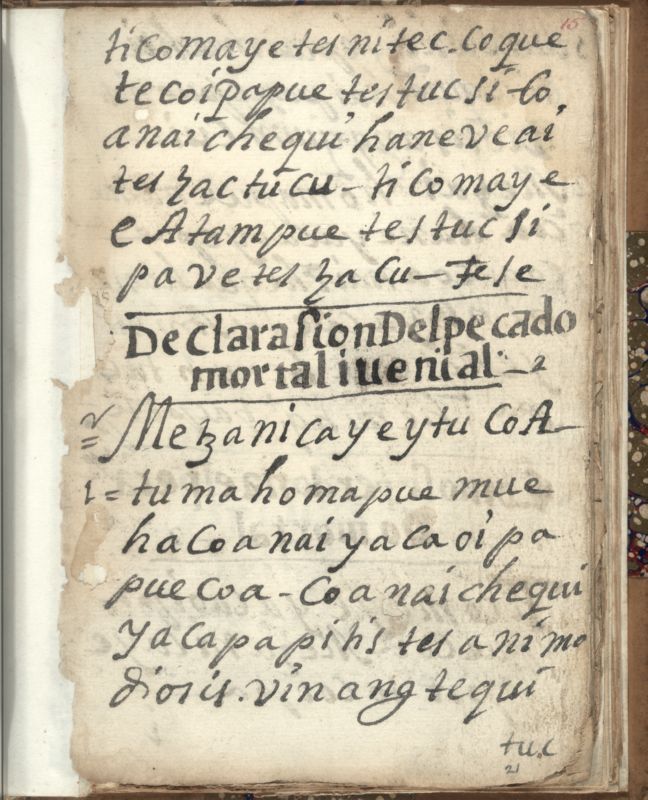 15
ticomaye tes nitec. Coque
te coipapue tes tuc si - Co
anai chequi haneveai
tes zac tucu - ticomaye
e Atampue tes tuc si
pa ve tes za cu - Jese
Declarasion Del pecado
mortal i uenial - 2
Mezanicayeytu CoA
1 = tumahomapue mue
ha Coanai yacaoi pa
pue coa - Coanaichequi
yacapapitis tes animo
diosis. vinang tequi
tu.c
21